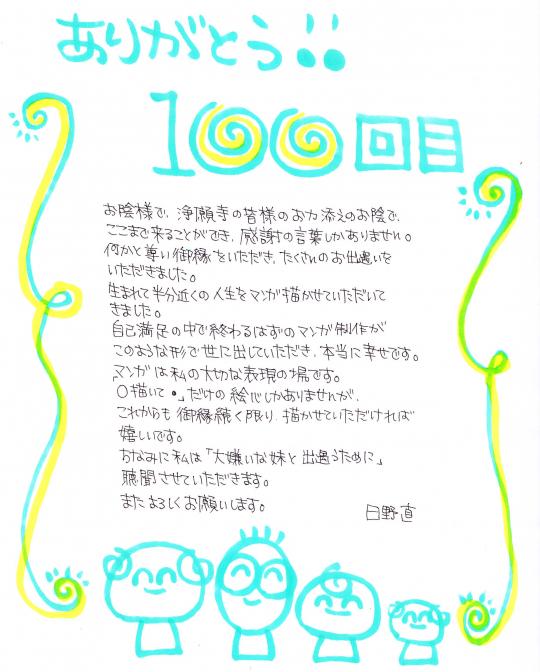 ありがとう!!
100回目
お陰様で、浄願寺の皆様のお力添えのお陰で、
ここまで来ることができ、感謝の言葉しかありません。
何かと尊い御縁をいただき、たくさんのお出遇いを
いただきました。
生まれて半分近くの人生をマンガ描かせていただいて
きました。
自己満足の中で終わるはずのマンガ制作が
このような形で世に出していただき、本当に幸せです。
マンガは私の大切な表現の場です。
「〇描いて・」だけの絵しかありませんが、
これからも御縁続く限り、描かせていただければ
嬉しいです。
ちなみに私は「大嫌いな妹と出遇うために」
聴聞させていただきます。
またよろしくお願いします。
日野直